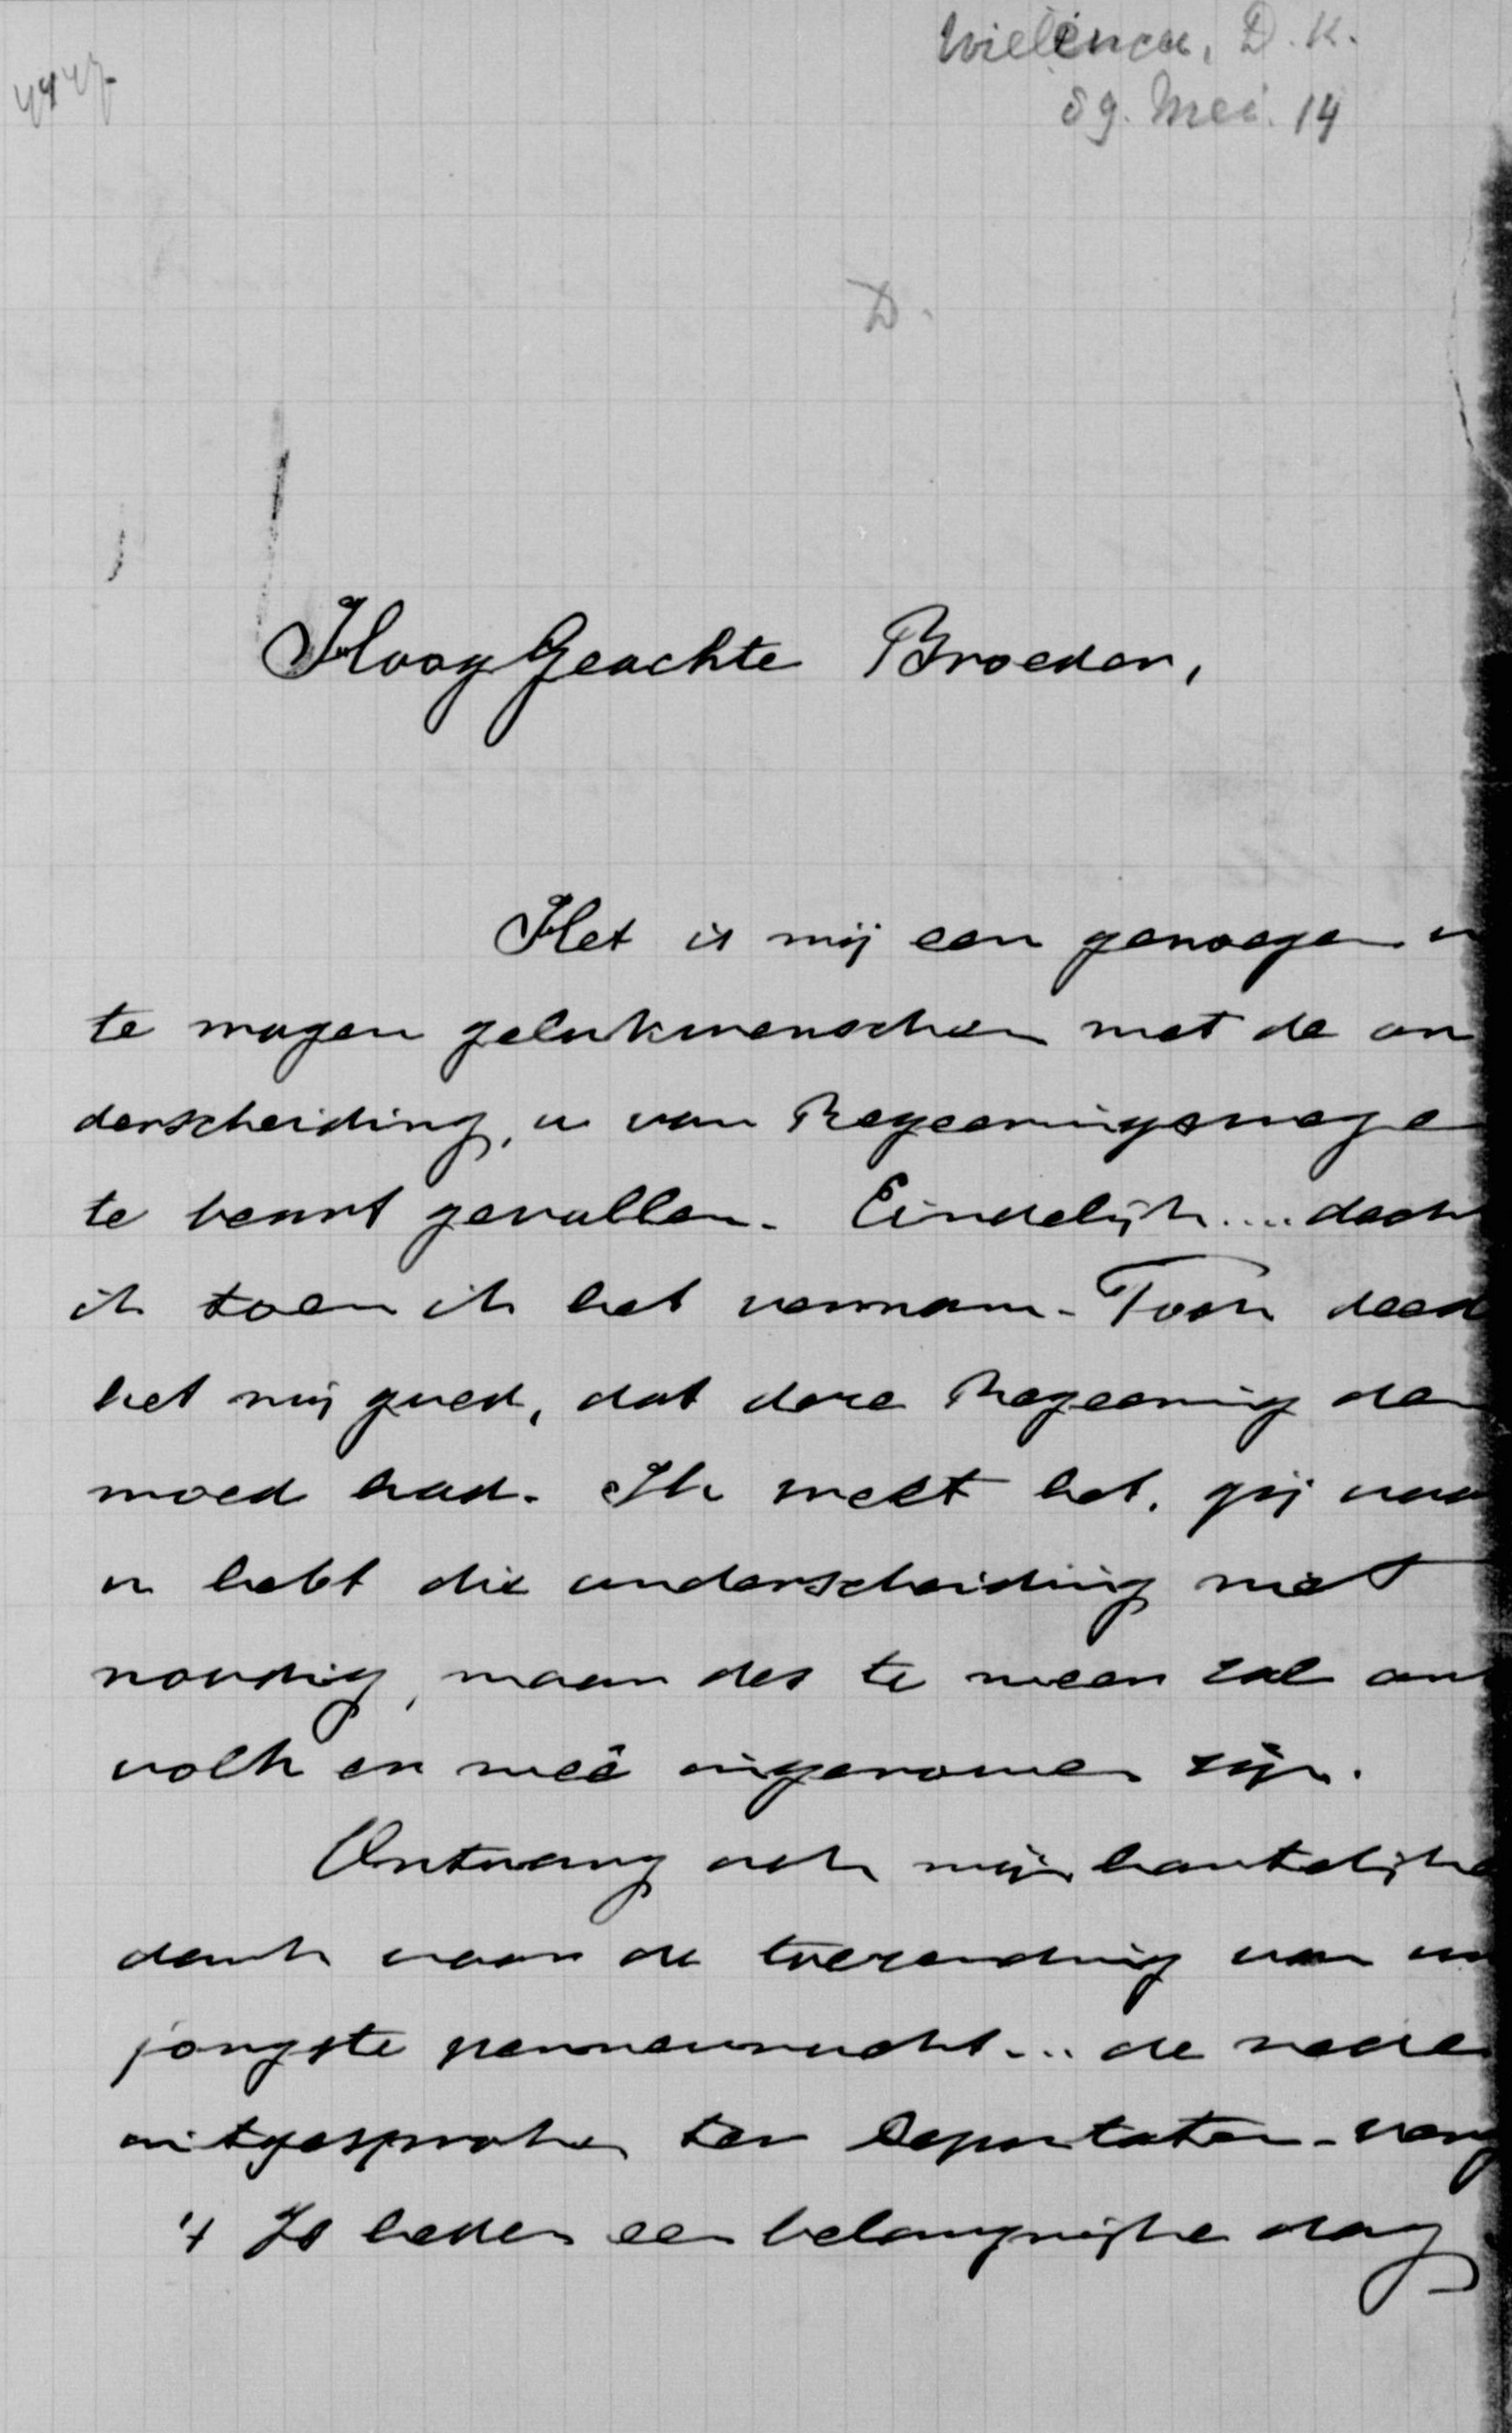 Wielenga, D.K.
Mei. 14
D.
HoogGeachte Broeder,
Het is mij een genoegen u
te mogen gelukwenschen met de on
derscheiding, u van Regeeringswege
te beurt gevallen. Eindelijk.... dacht
ik toen ik het vernam. Toch deed
het mij goed, dat deze Regeering den
moed had. Ik weet het, gij voor
u hebt die onderscheiding niet
noodig, maar des te meer zal ons
volk er meê ingenomen zijn.
Ontvang ook mijn hartelijke
dank voor de toezending van uw
jongste pennevrucht... de rede
uitgesproken ter Deputaten-verg
't Is heden een belangrijke dag